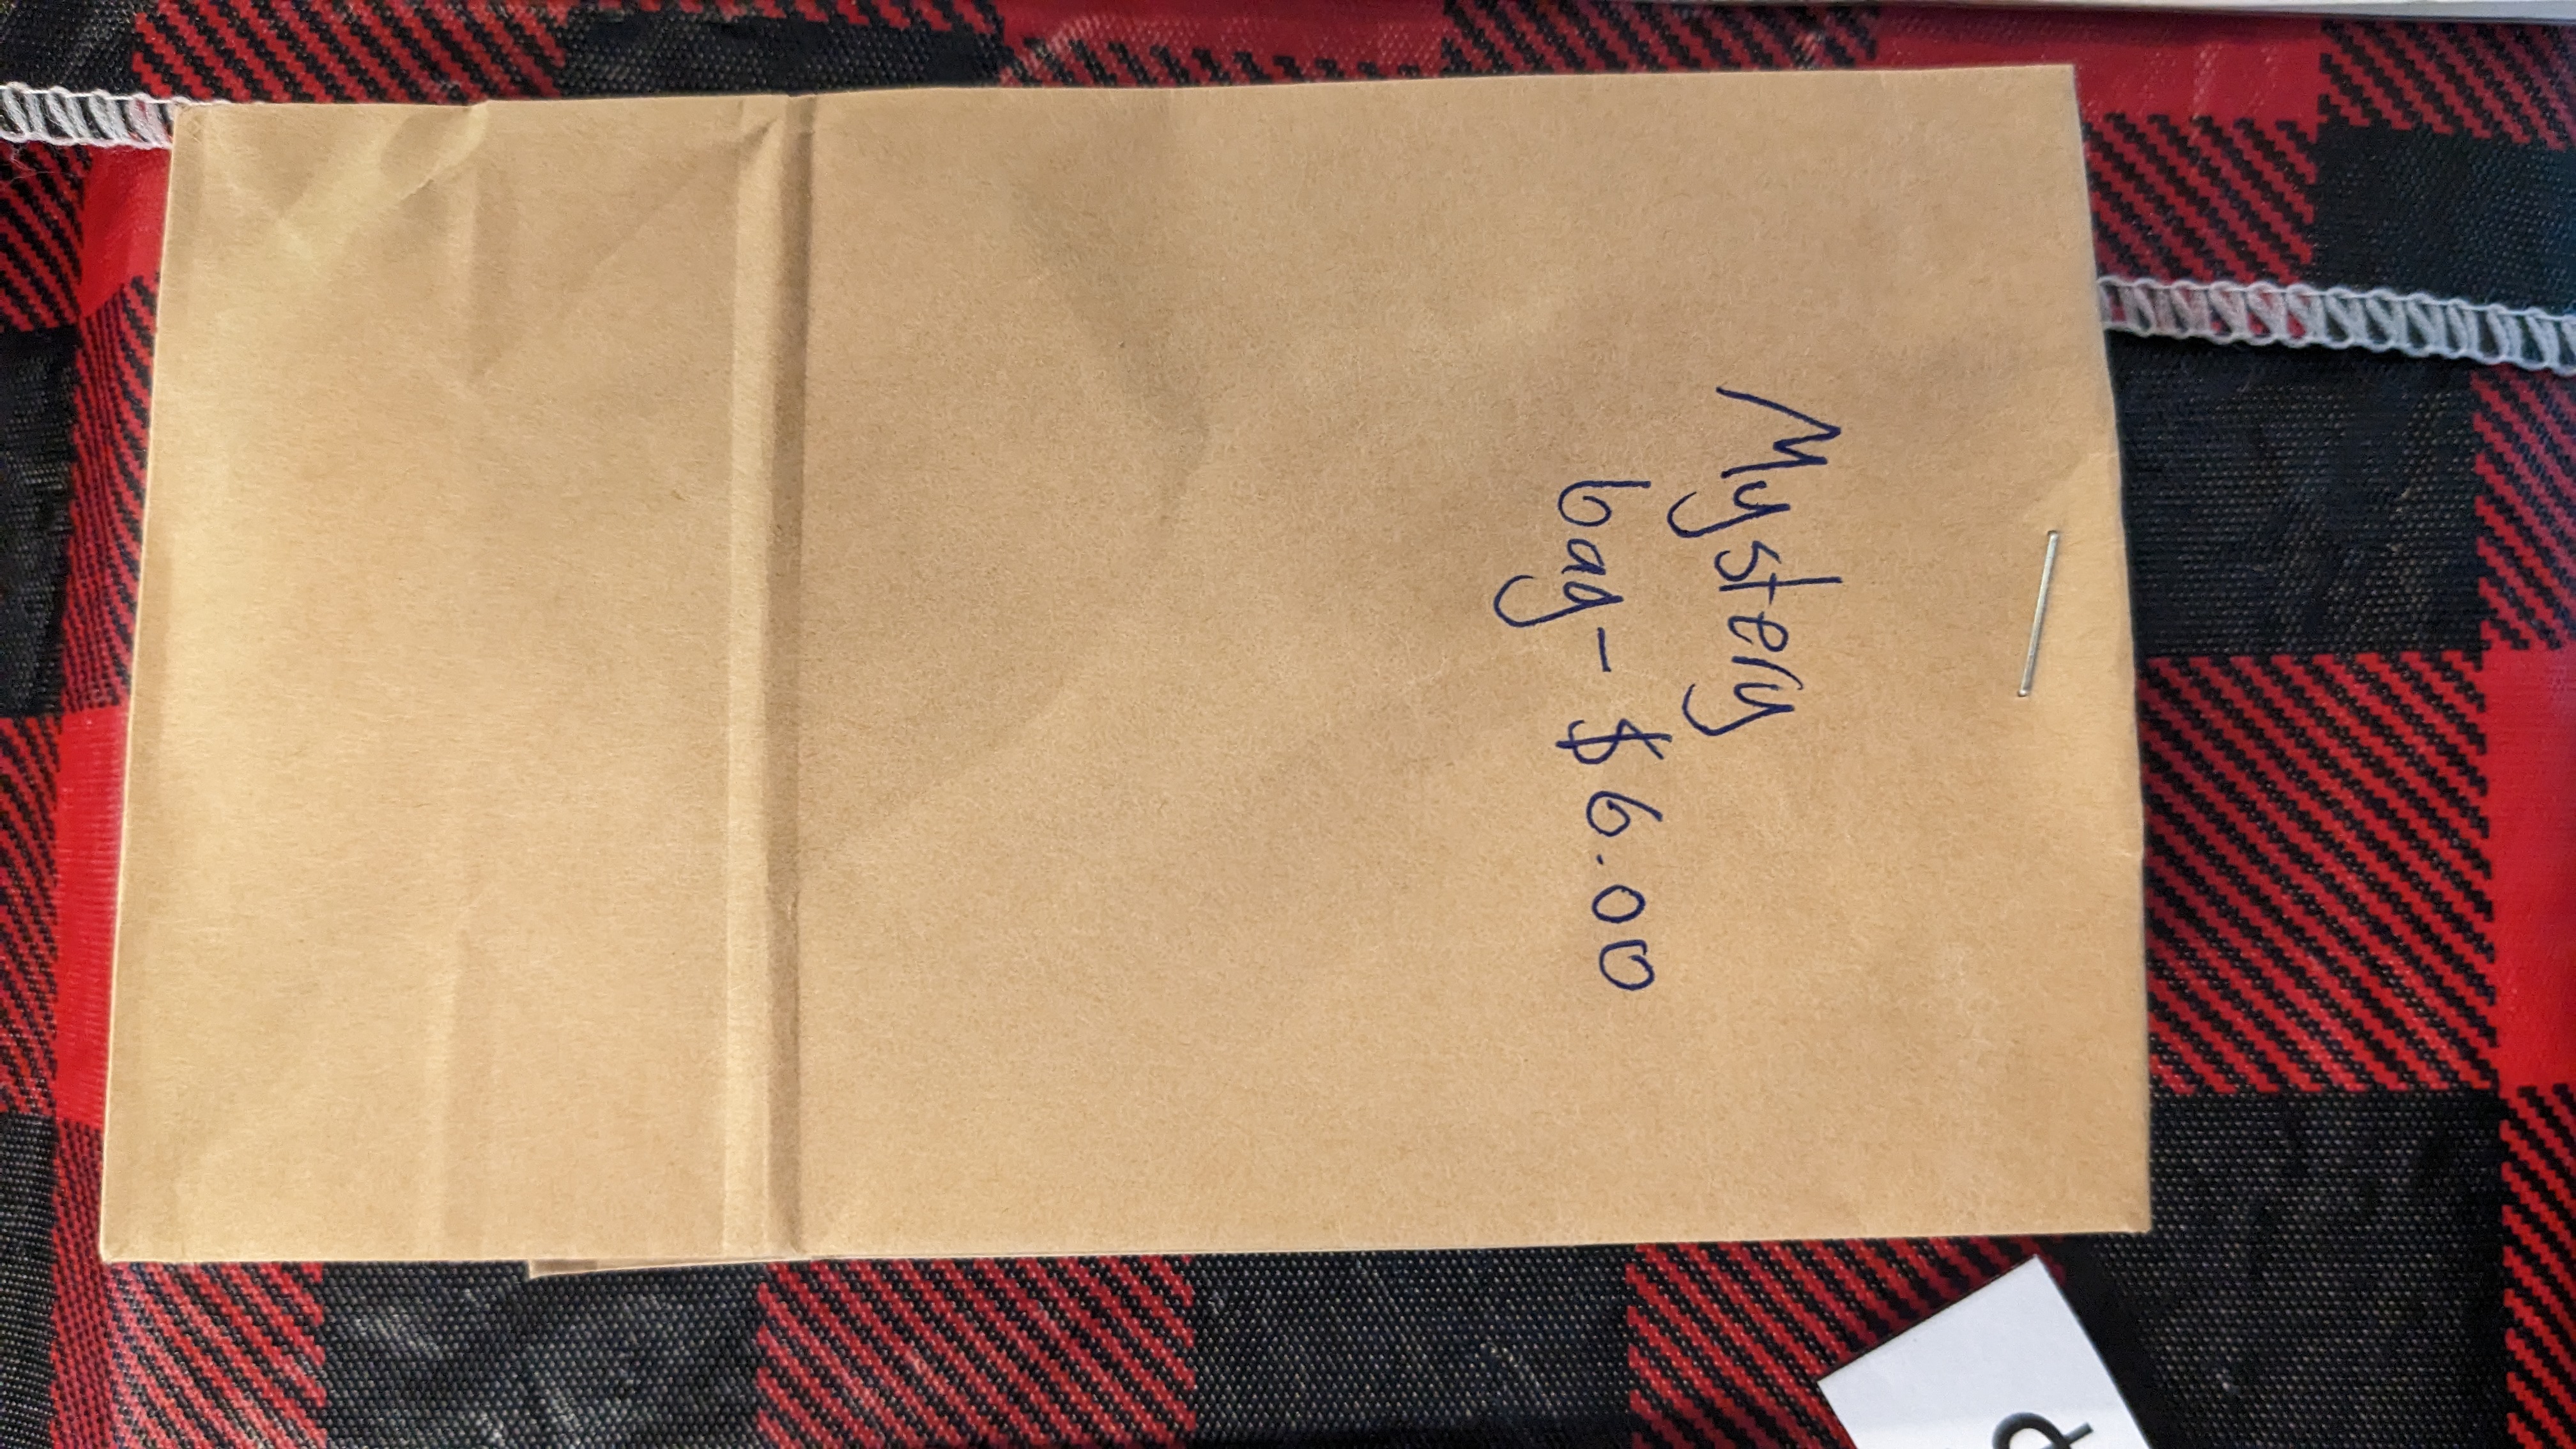 Mystery
bag - $6.00